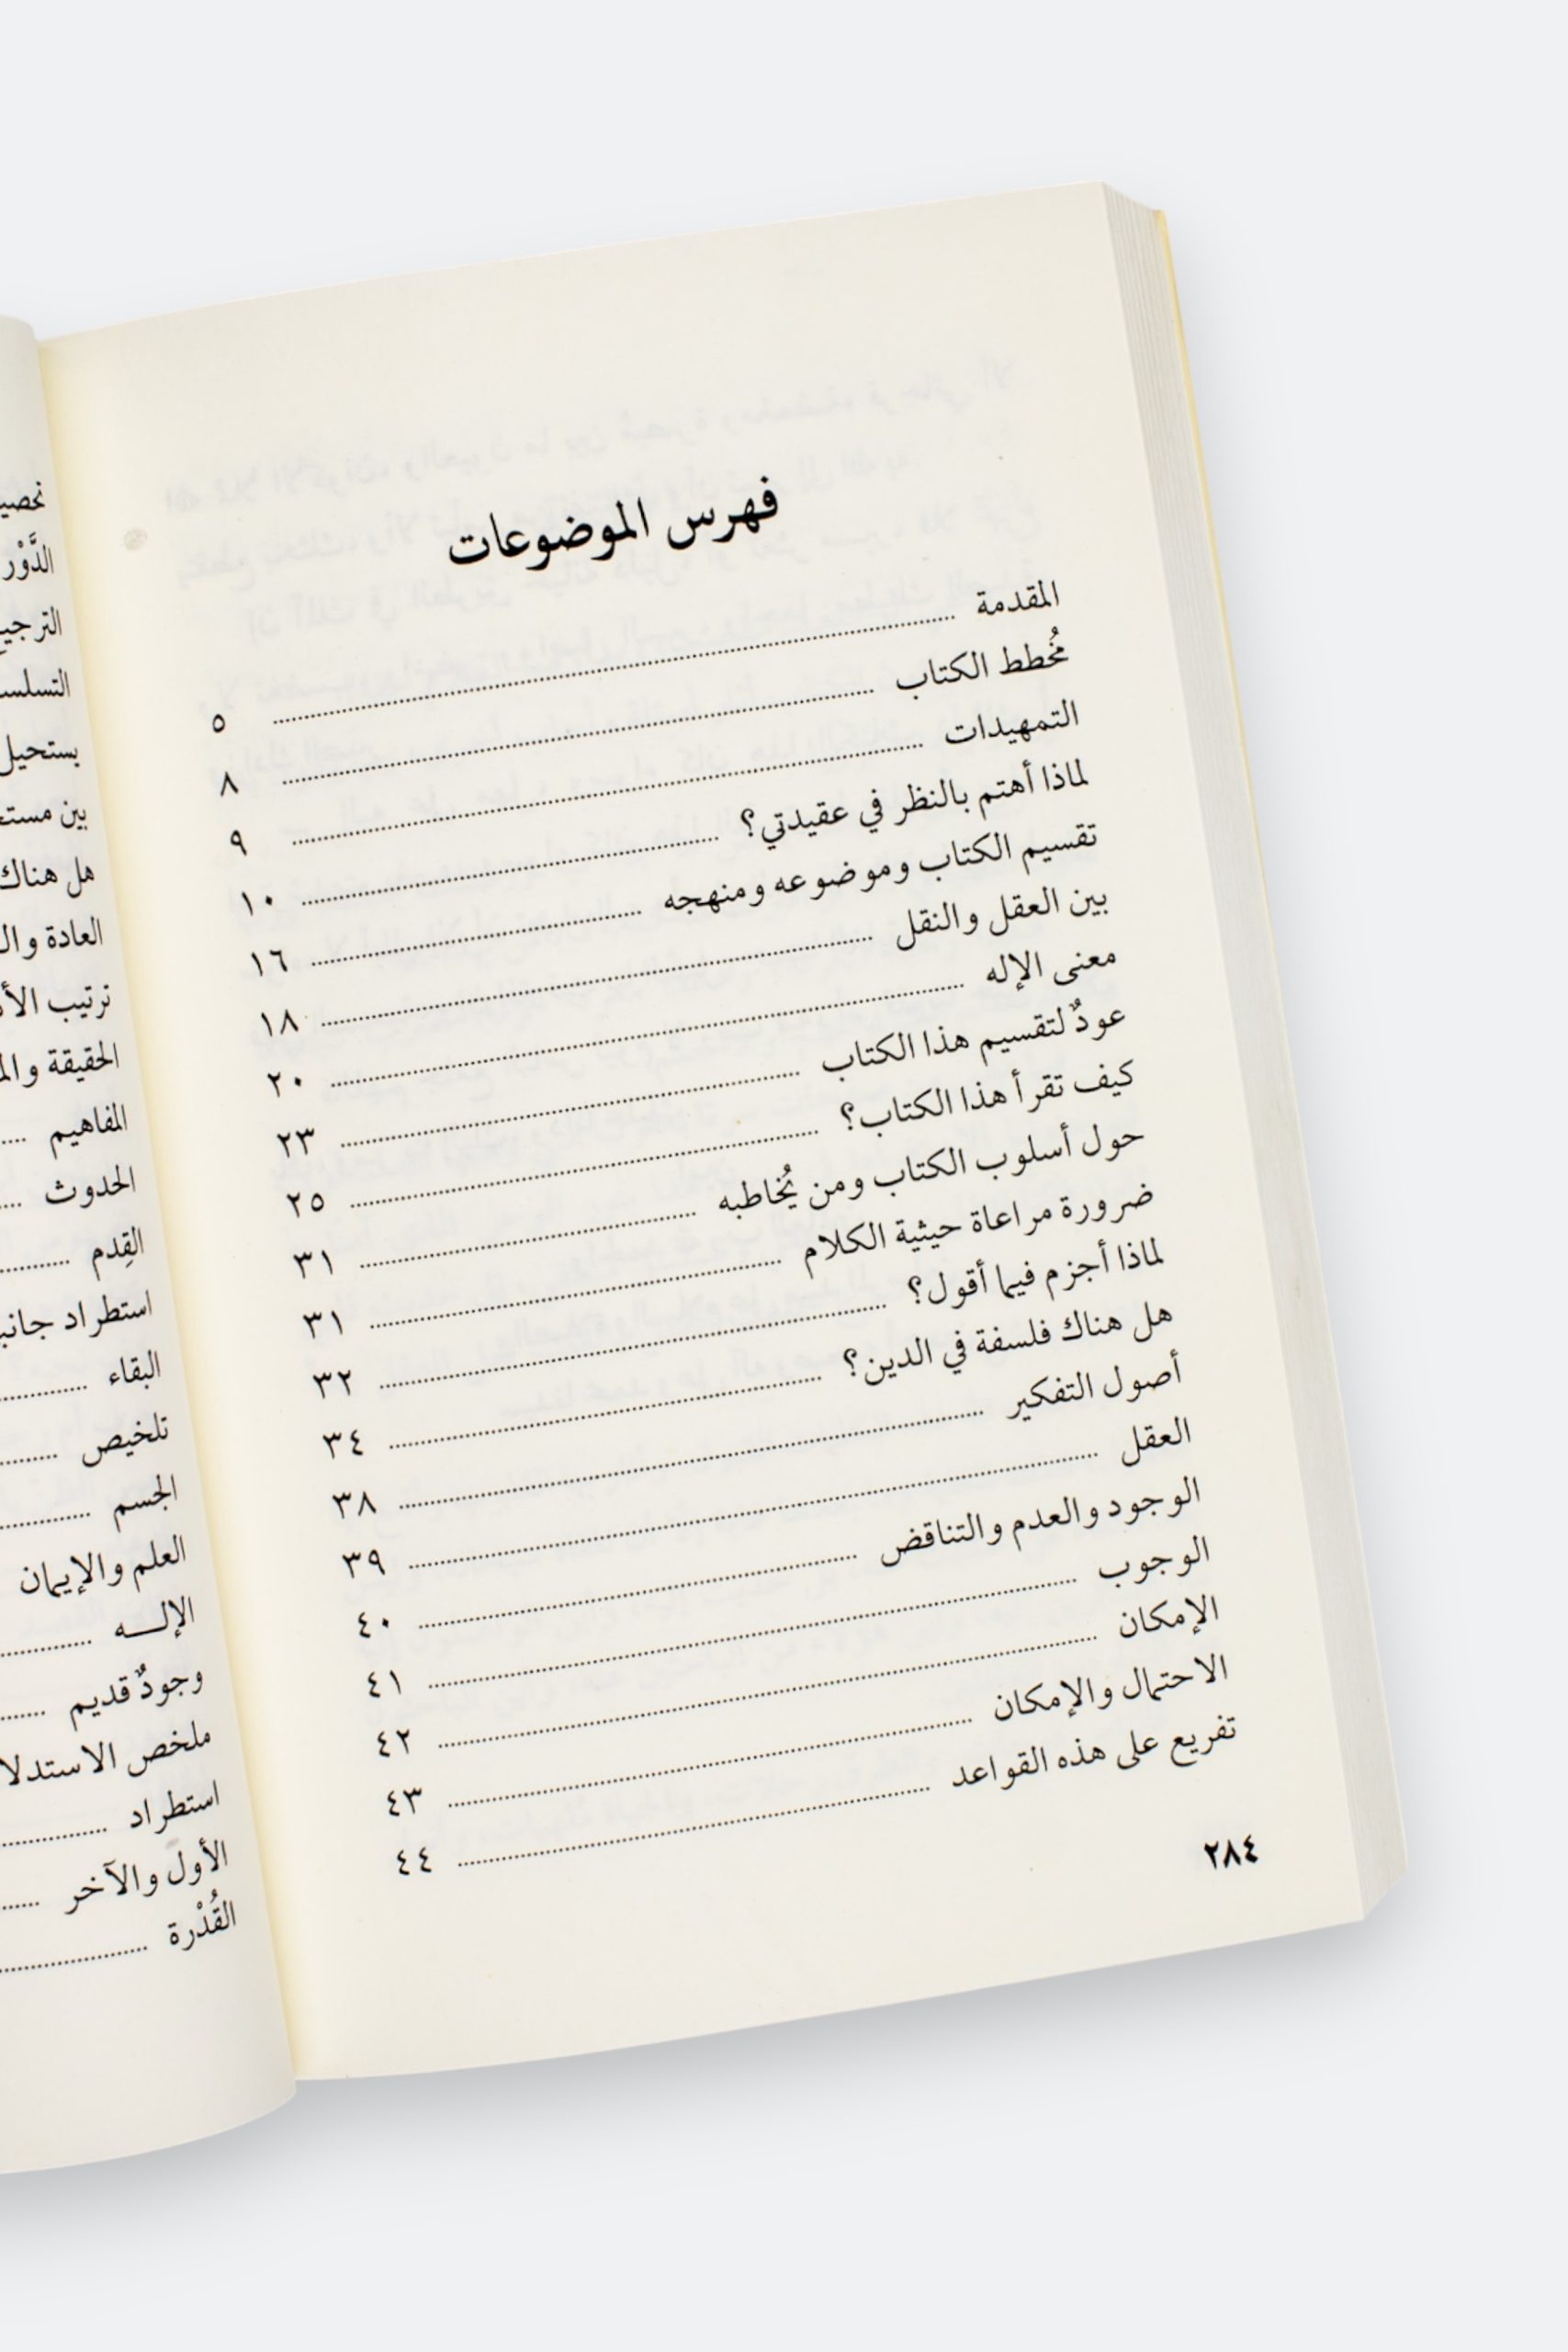 فهرس الموضوعات
المقدمة ........ ٥
مُخطط الكتاب ........ ٨
التمهيدات ........ ٩
لماذا أهتم بالنظر في عقيدتي؟ ........ ١٠
تقسيم الكتاب وموضوعه ومنهجه ........ ١٦
بين العقل والنقل ........ ١٨
معنى الإله ........ ٢٠
عودٌ لتقسيم هذا الكتاب ........ ٢٣
كيف تقرأ هذا الكتاب؟ ........ ٢٥
حول أسلوب الكتاب ومن يُخاطبه ........ ٣١
ضرورة مراعاة حيثية الكلام ........ ٣١
لماذا أجزم فيما أقول؟ ........ ٣٢
هل هناك فلسفة في الدين؟ ........ ٣٤
أصول التفكير ........ ٣٨
العقل ........ ٣٩
الوجود والعدم والتناقض ........ ٤٠
الوجوب ........ ٤١
الإمكان ........ ٤٢
الاحتمال والإمكان ........ ٤٣
تفريع على هذه القواعد ........ ٤٤
٢٨٤
الدَّوْر
يستحيل
بين
هل هناك
العادة
ترتيب
الحقيقة
المفاهيم ........
الحدوث ........
القِدم ........
استطراد
البقاء ........
تلخيص ........
الجسم ........
العلم والإيمان
الإلـــه ........
وجودٌ قديم ........
ملخص
استطراد ........
الأول والآخر ........
القُدْرة ........